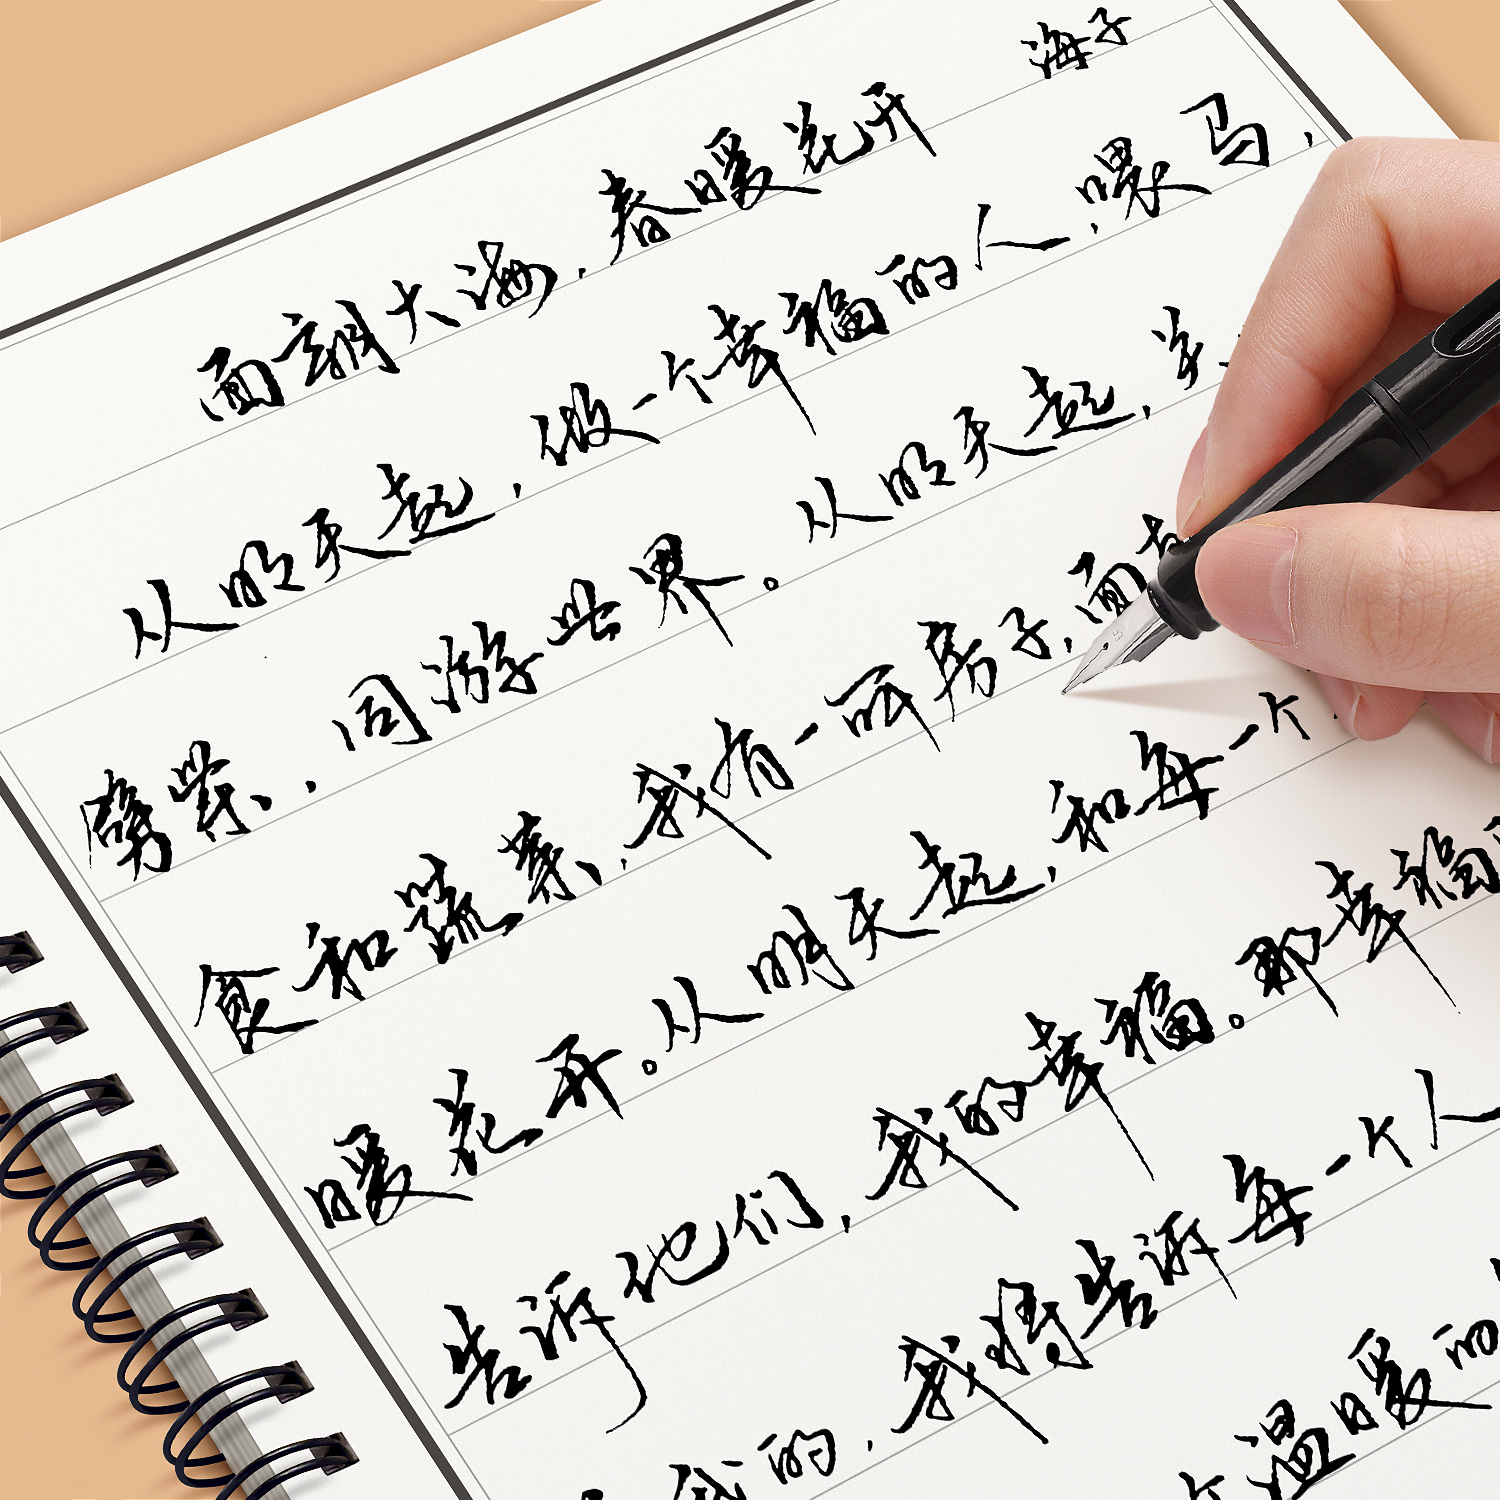 面朝大海,春暖花开 海子
从明天起,做一个幸福的人,喂马,
劈柴,同游世界。从明天起,关
食和蔬菜,我有一所房子,面
暖花开。从明天起,和每一个
告诉他们,我的幸福。那幸福
我的,我将告诉每一个人
个温暖的